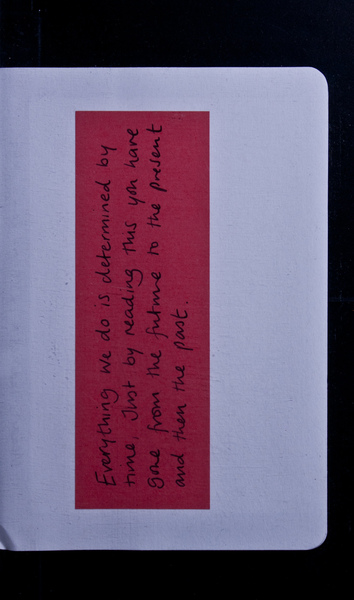 Everything we do is determined by
time. Just by reading this you have
gone from the future to the present
and then the past.